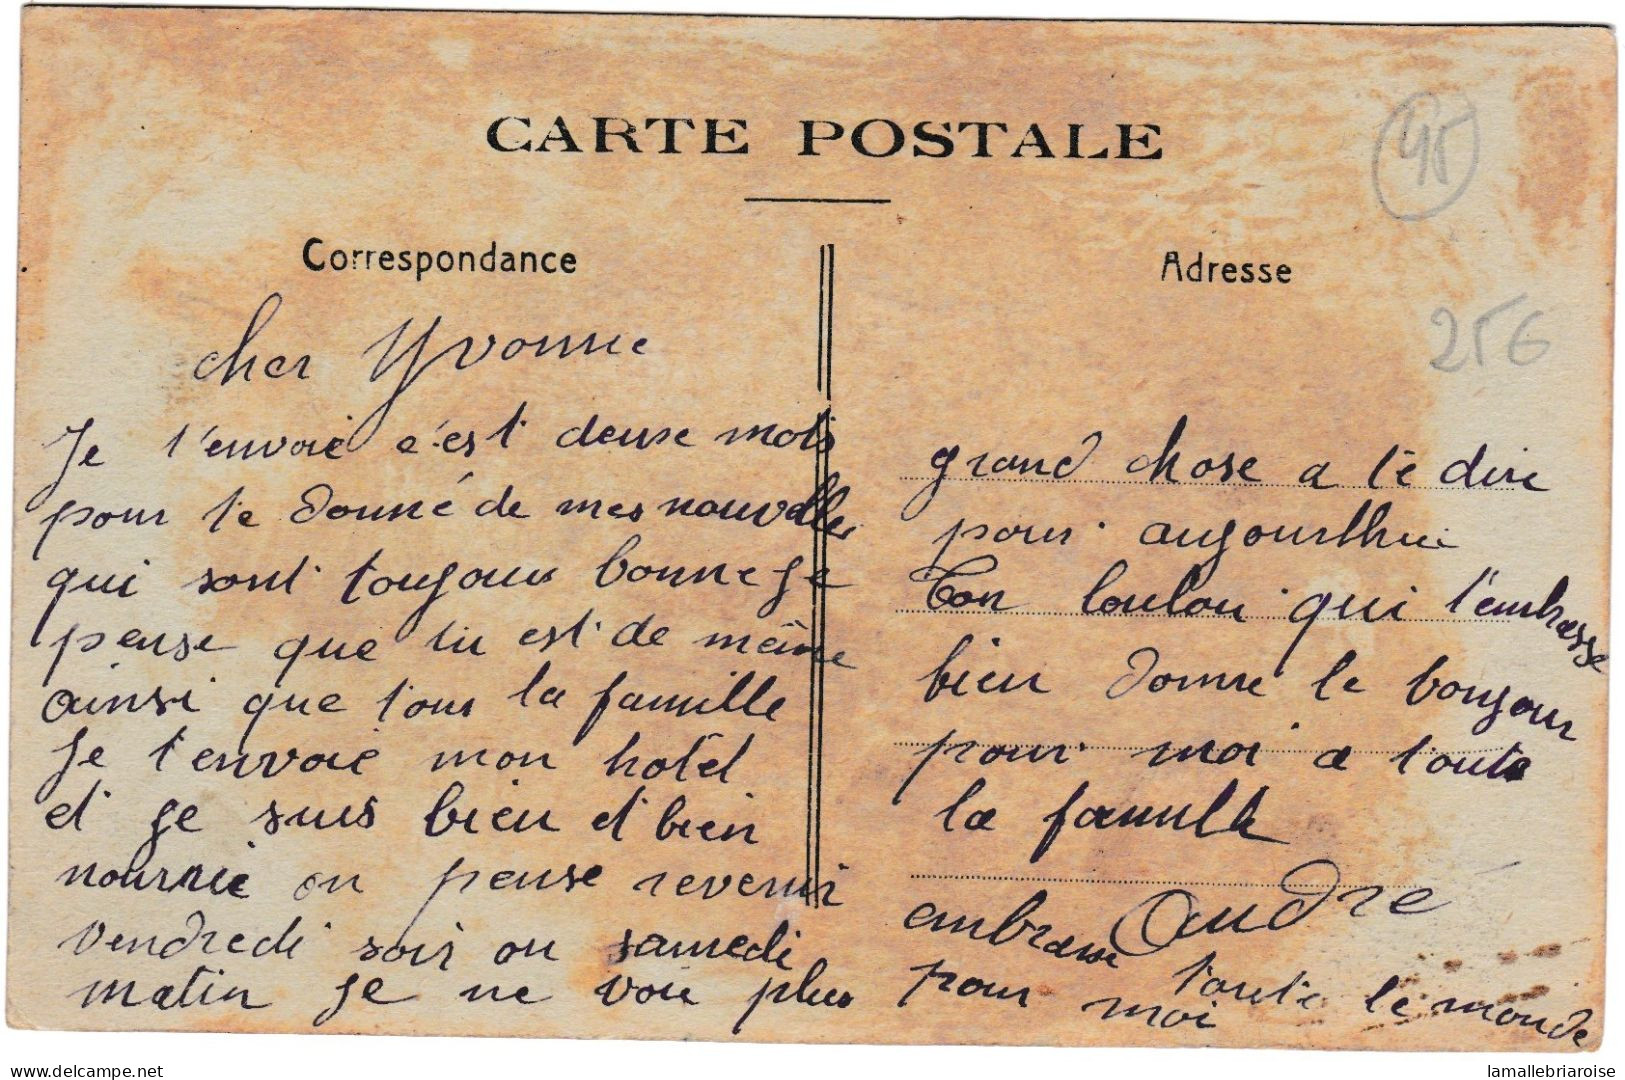 CARTE POSTALE
45
Correspondance
Adresse
25€
cher Yvonne
Je t'envoie c'est deuse mots
pour te donné de mes nouvelles
qui sont toujours bonne je
pense que tu est de même
ainsi que tout la famille
Je t'envoie mon hotel
et je suis bien et bien
nourrie on pense revenir
vendredi soir ou samedi
matin je ne voie plus
grand chose a te dire
pour aujourdhui
Ton loulou qui t'embrasse
bien donne le bonjour
pour moi a toute
la famille
André
embrasse toute le monde
pour moi
delcampe.net
lamallebriaroise